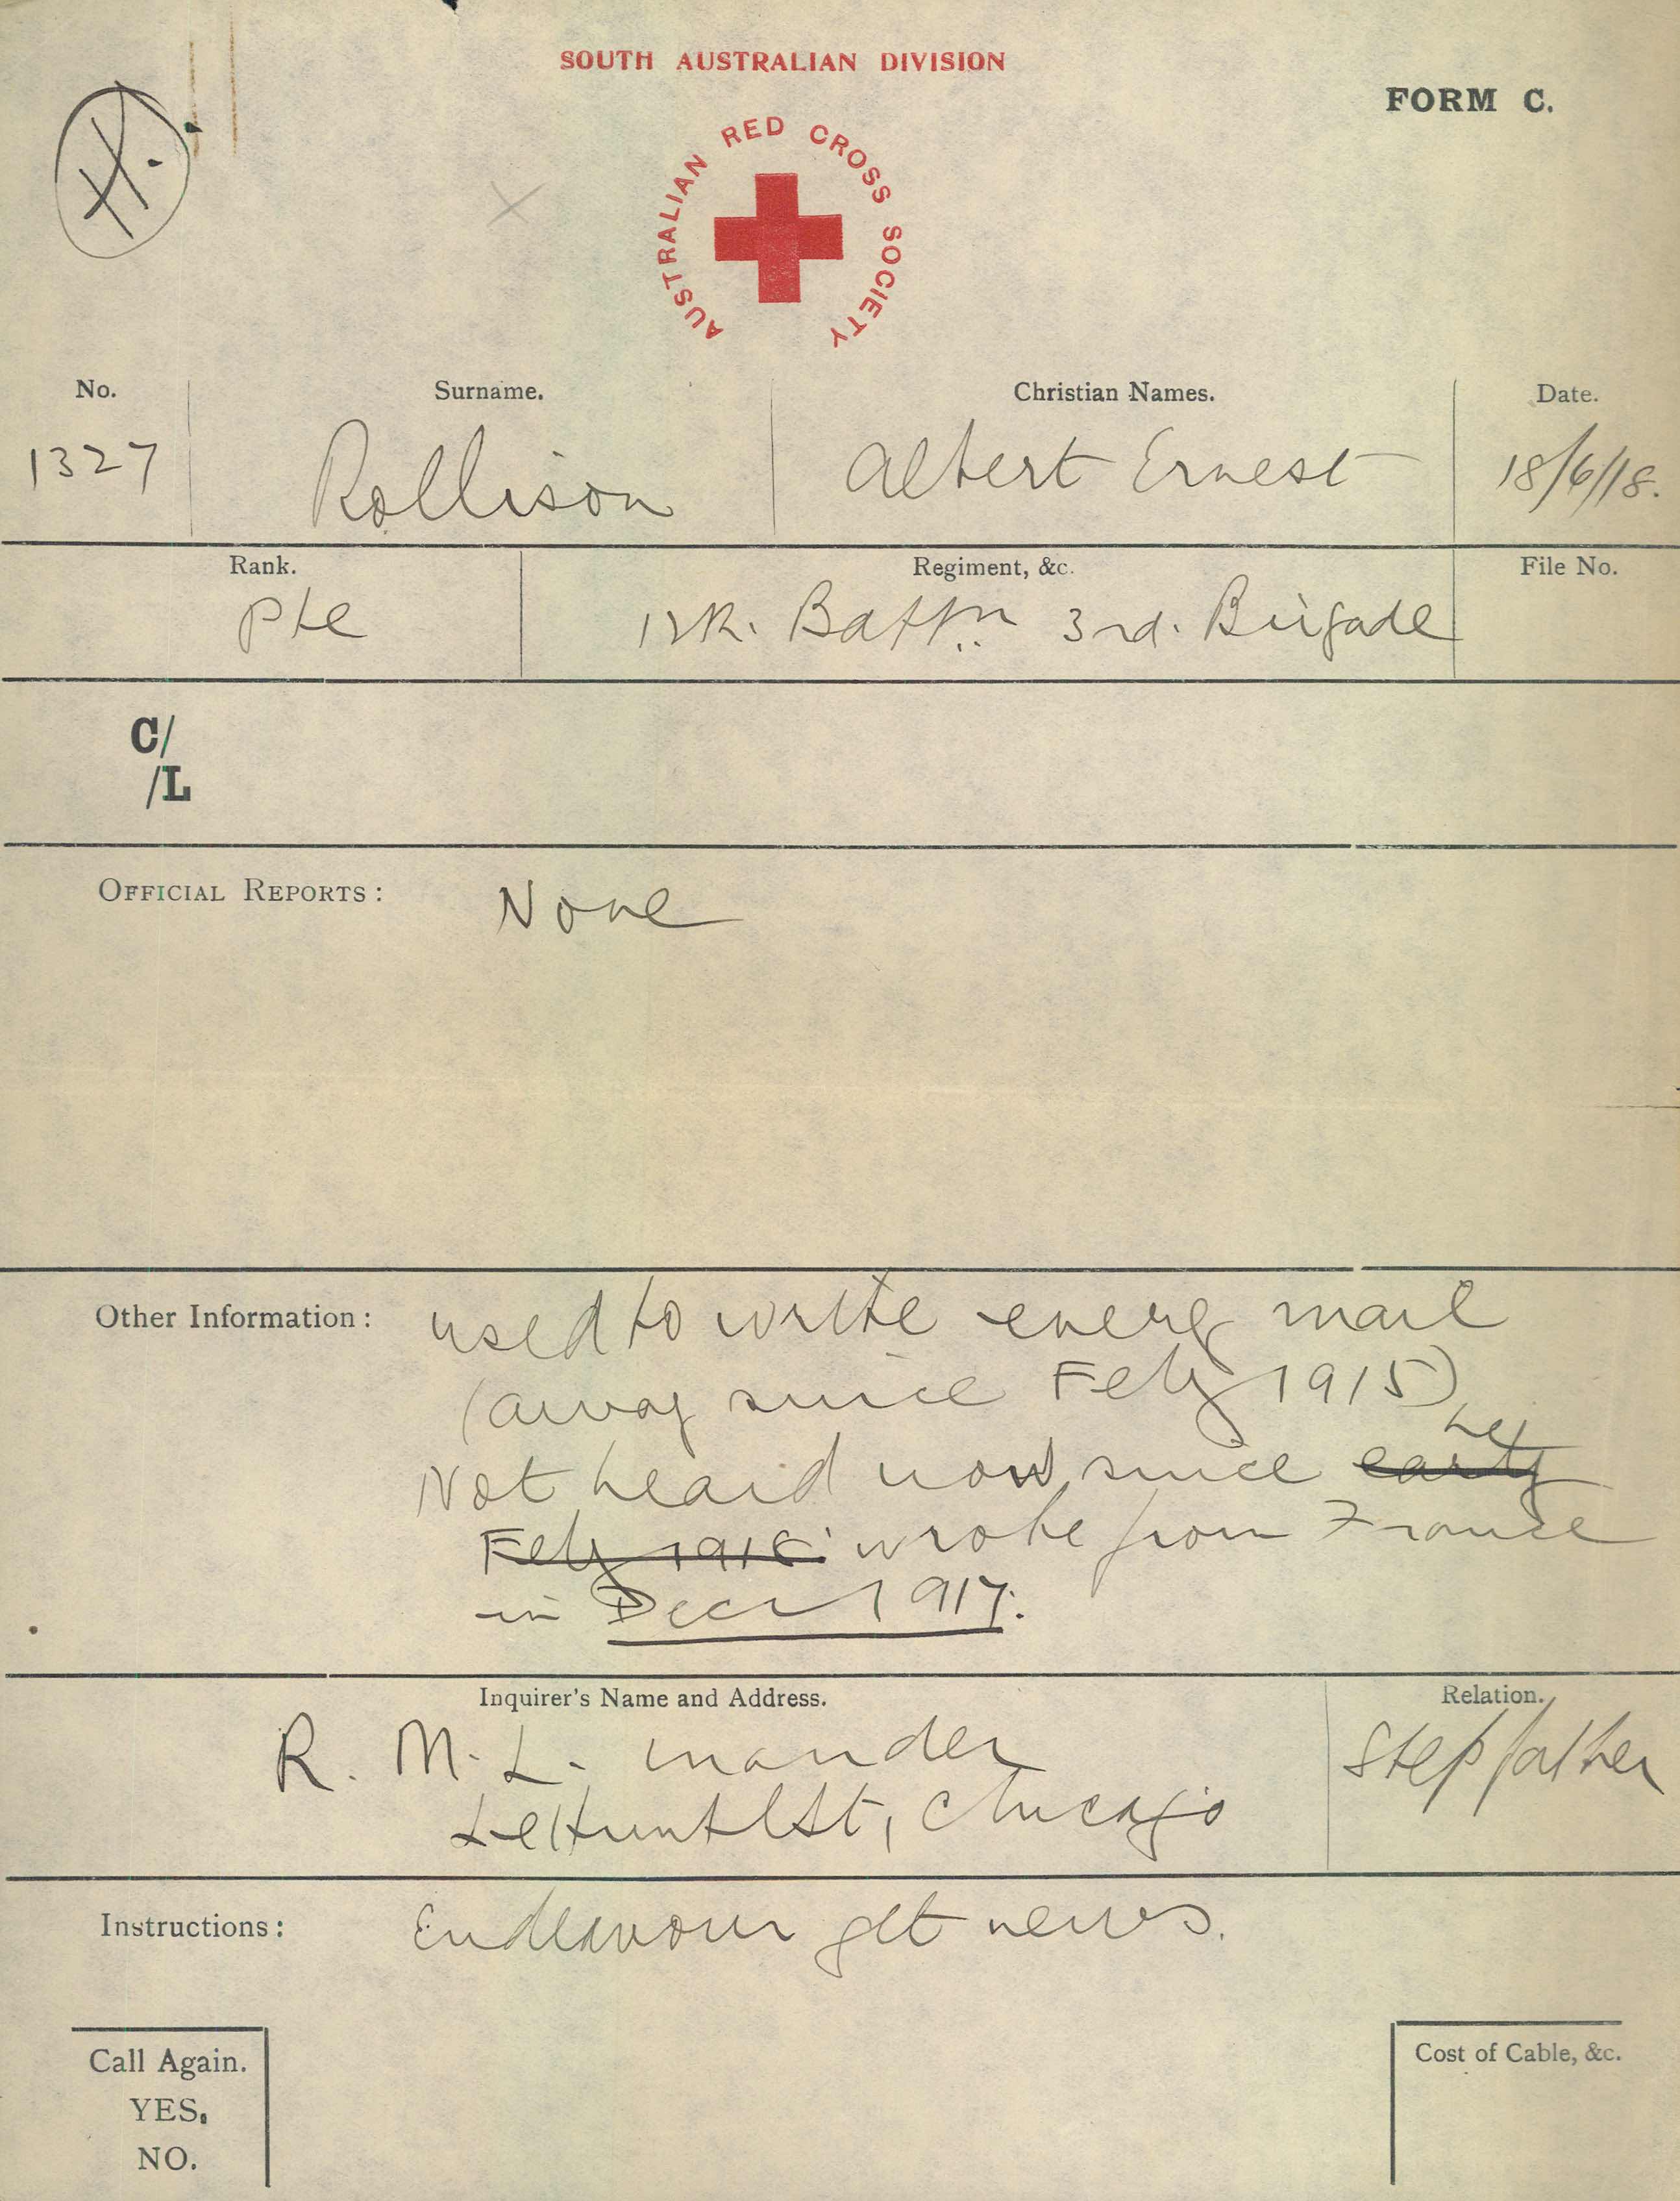 SOUTH AUSTRALIAN DIVISION
FORM C.
H.
AUSTRALIAN RED CROSS SOCIETY
No. Surname. Christian Names. Date.
1327 Rollison Albert Ernest 18/6/18.
Rank. Regiment, &c. File No.
Pte 12th. Battn 3rd. Brigade
C/
/L
OFFICIAL REPORTS: None
Other Information: used to write every mail
(away since Feby 1915)
he
Not heard now, since early
Feby 1918. wrote from France
in Decr 1917.
Inquirer's Name and Address. Relation.
R. M. L. Mander Stepfather
LeHunt St, Chicago
Instructions: Endeavour get news.
Call Again. Cost of Cable, &c.
YES.
NO.